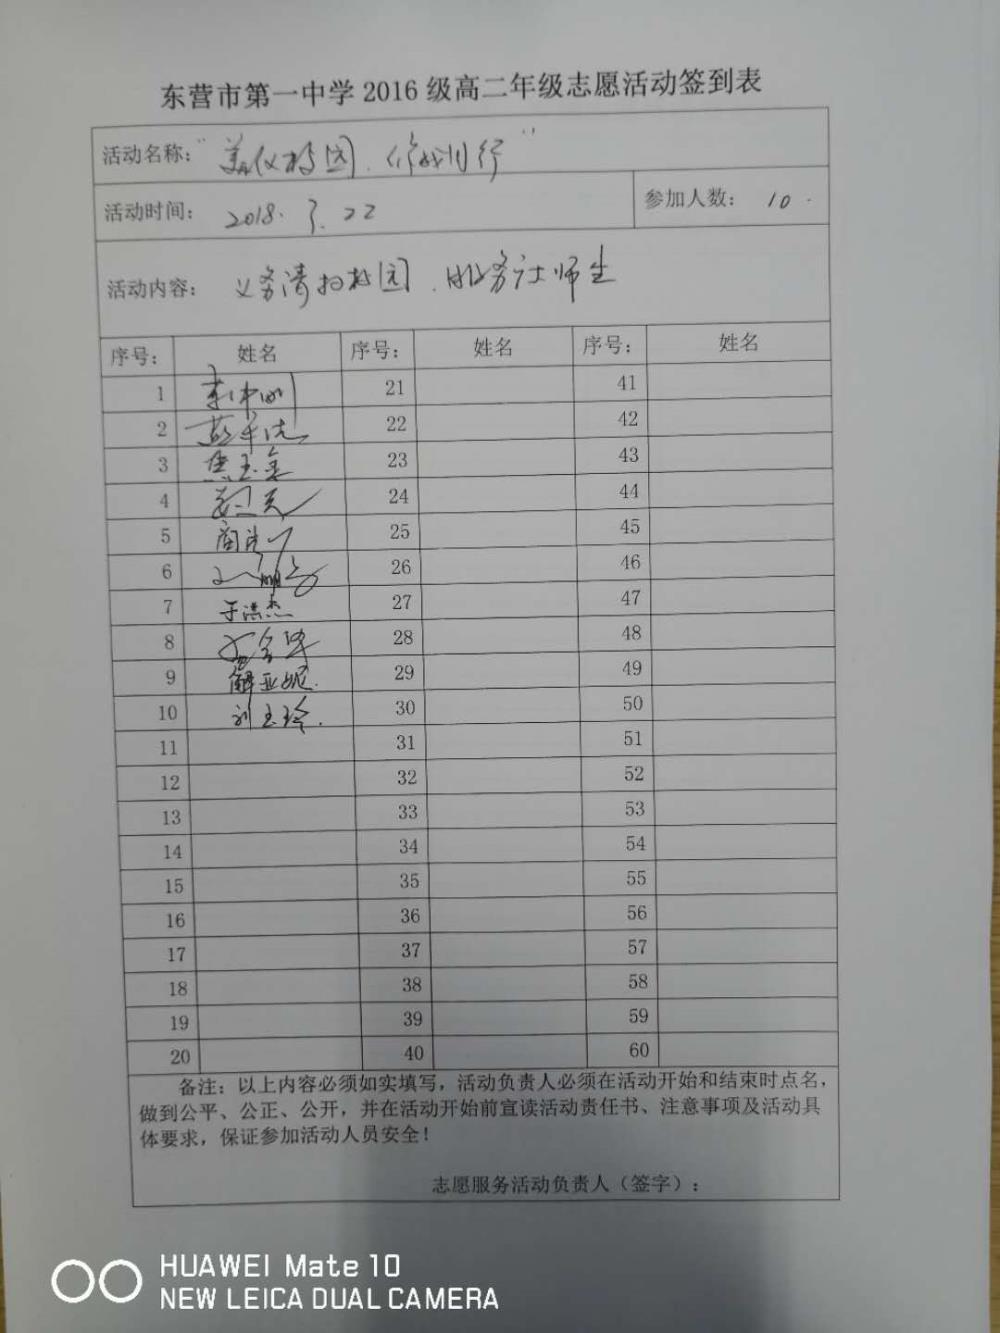 东营市第一中学2016级高二年级志愿活动签到表
活动名称：“美仪校园、 行”
活动时间： 2018.3.22 参加人数： 10.
活动内容： 义务清扫校园、服务 师生
序号： 姓名 序号： 姓名 序号： 姓名
1 21 41
2 22 42
3 焦玉金 23 43
4 24 44
5 25 45
6 26 46
7 于洪杰 27 47
8 28 48
9 解亚妮. 29 49
10 刘玉玲. 30 50
11 31 51
12 32 52
13 33 53
14 34 54
15 35 55
16 36 56
17 37 57
18 38 58
19 39 59
20 40 60
备注：以上内容必须如实填写，活动负责人必须在活动开始和结束时点名，
做到公平、公正、公开，并在活动开始前宣读活动责任书、注意事项及活动具
体要求，保证参加活动人员安全！
志愿服务活动负责人（签字）：
HUAWEI Mate 10
NEW LEICA DUAL CAMERA